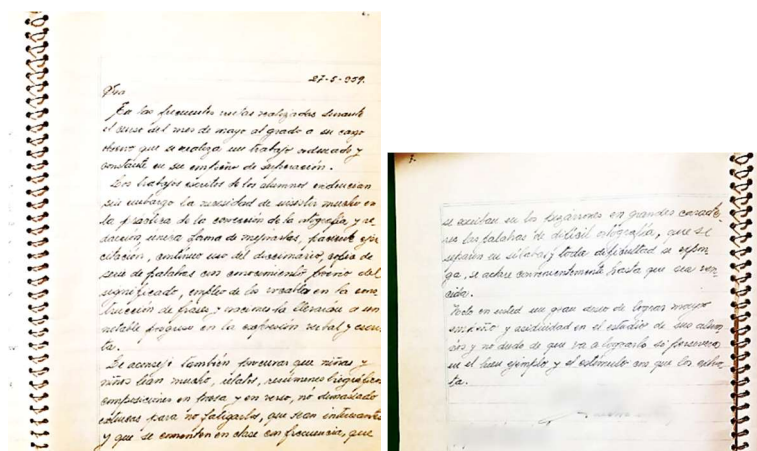 27-5-959.
Sra
En las frecuentes visitas realizadas durante
el curso del mes de mayo al grado a su cargo
observo que se realiza un trabajo ordenado y
constante en su empeño de superación.
Los trabajos escritos de los alumnos evidencian
sin embargo la necesidad de insistir mucho en
la práctica de la corrección de la ortografía y re-
dacción, única forma de mejorarlas, haciente ejer
citación, continuo uso del diccionario, copia de
series de palabras con conocimiento previo del
significado, empleo de los vocablos en la cons
trucción de frases,
notable progreso en la expresión verbal y escri
ta.
Le aconsejo también procurar que niñas y
niños lean mucho, relatos, resúmenes biográficos
composiciones en prosa y en verso, no demasiado
extensas para no fatigarlos, que sean interesantes
y que se comenten en clase con frecuencia, que
7.
se escriban en los pizarrones en grandes caracte-
res las palabras de difícil ortografía, que se
separen en sílabas y toda dificultad se expon-
ga, se aclare convenientemente hasta que sea ven
cida.
Noto en usted un gran deseo de lograr mayor
empeño y asiduidad en el estudio de sus alum-
nos y no dudo de que va a lograrlo si persevera
en el buen ejemplo y el estímulo con que los exhor-
ta.